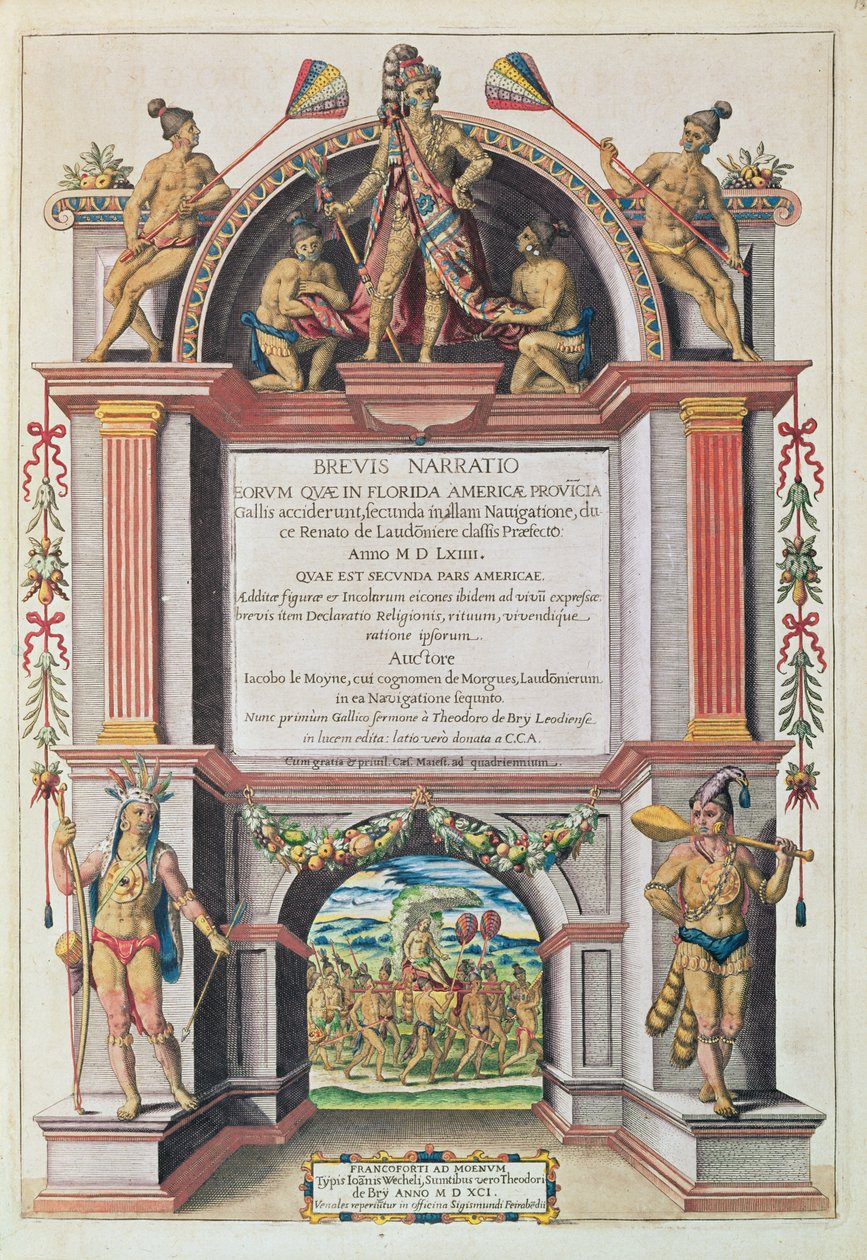 BREVIS NARRATIO
EORVM QVÆ IN FLORIDA AMERICÆ PROVĪCIA
Gallis acciderunt, secunda in illam Nauigatione, du-
ce Renato de Laudōniere classis Præfecto:
Anno M D LXIIII.
QVAE EST SECVNDA PARS AMERICAE.
Additæ figuræ & Incolarum eicones ibidem ad vivū expressæ:
brevis item Declaratio Religionis, rituum, vivendique
ratione ipsorum.
Auctore
Iacobo le Moyne, cui cognomen de Morgues, Laudōnierum
in ea Navigatione sequnto.
Nunc primùm Gallico sermone à Theodoro de Brÿ Leodiense
in lucem edita: latio verò donata a C.C.A.
Cum gratia & privil. Cæs. Maiest. ad quadriennium.
FRANCOFORTI AD MOENVM
Typis Ioānis Wecheli, Sumtibus vero Theodori
de Brÿ ANNO M D XCI.
Venales reperiūtur in officina Sigismundi Feirabēdii